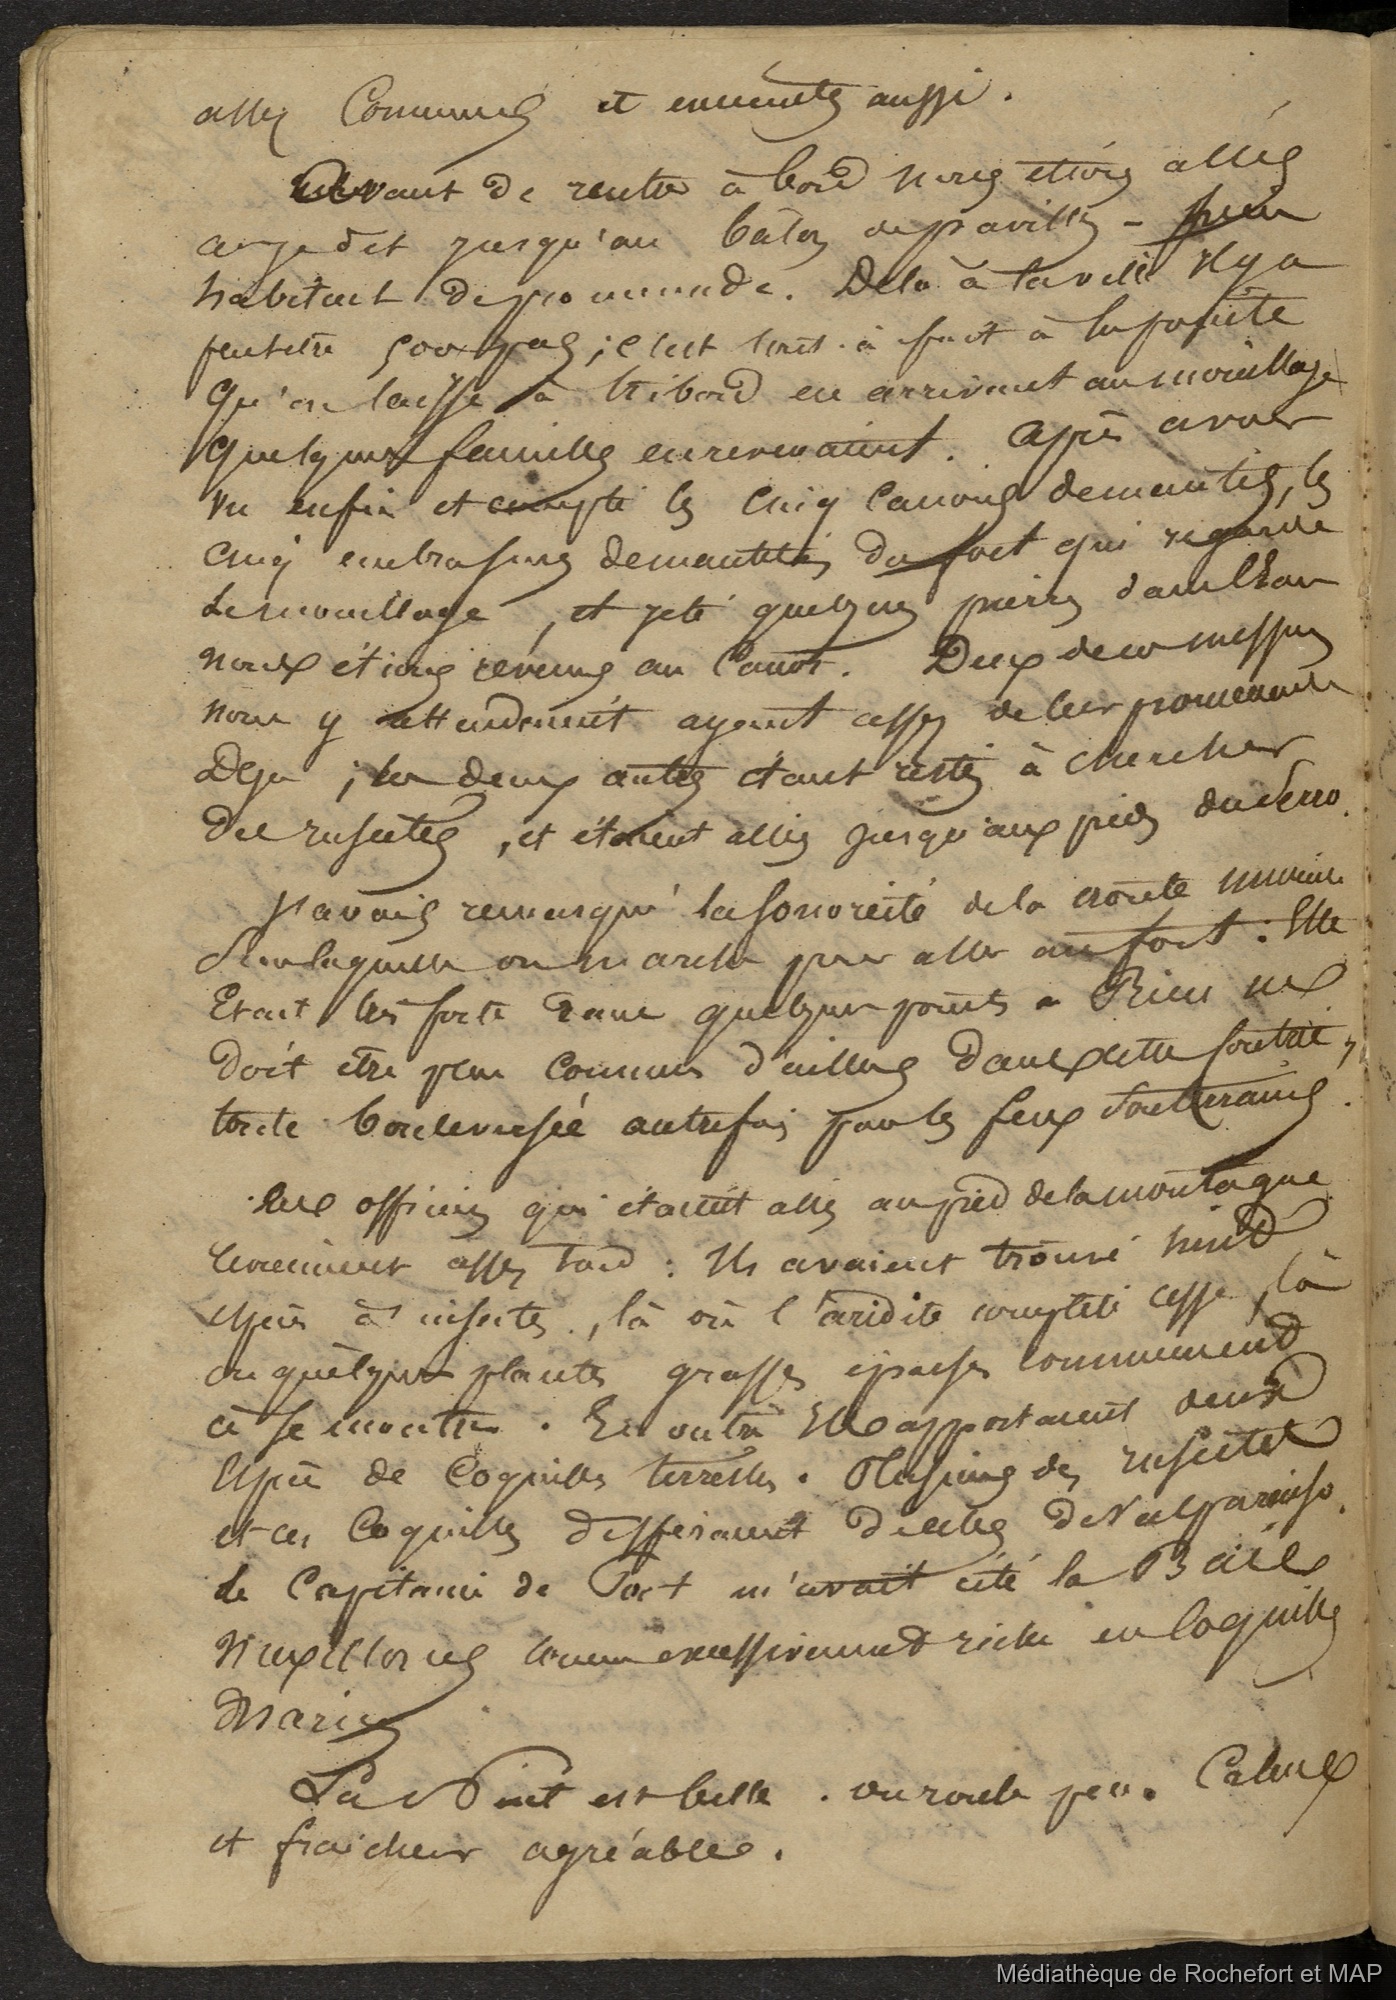 assez Communes et ennuientes aussi.
Avant de rentrer à bord nous étions allés
jusqu'au bâton de pavillon -
habituel de promenade. De la à la ville il y a
peutetre 500 pas ; c'est tout à fait à la pointe
qu'on laisse à tribord en arrivant au mouillage
quelques familles en revenaient. Après avoir
vu enfin et compté les Cinq Canons demantelés, les
cinq embrasures demantelées du fort qui regarde
Le mouillage, et jeté quelques pierres dans l'eau
nous étions revenus au Canot. Deux de ces messieurs
nous y attendaient ayant assez de leur promenade
Deja ; les deux autres étant restés à chercher
des insectes, et étaient allés jusqu'aux pieds du Serro.
J'avais remarqué la sonoreité de la croute
sur laquelle on marche pour aller au fort : Elle
Etait très forte dans quelques points. Rien ne
doit etre plus commun d'ailleurs dans cette contrée,
toute bouleversée autrefois par les feux Souterrains.
Les officiers qui étaient allés au pied de la montagne
revinrent assez tard : Ils avaient trouvé huit
espèces d'insectes, là où l'aridité complète cesse, là
ou quelques plantes grasses éparses commencent
à se montrer. En outre Ils apportaient deux
Espèces de Coquilles terrestres. Plusieurs des insectes
et ces Coquilles differaient de celles de Valparaiso.
Le Capitaine de Port m'avait cité la Baie
Mexillones comme excessivement riche en Coquilles
Marines
La Nuit est belle. on roule peu. Calme
et fraicheur agréable.
Médiathèque de Rochefort et MAP